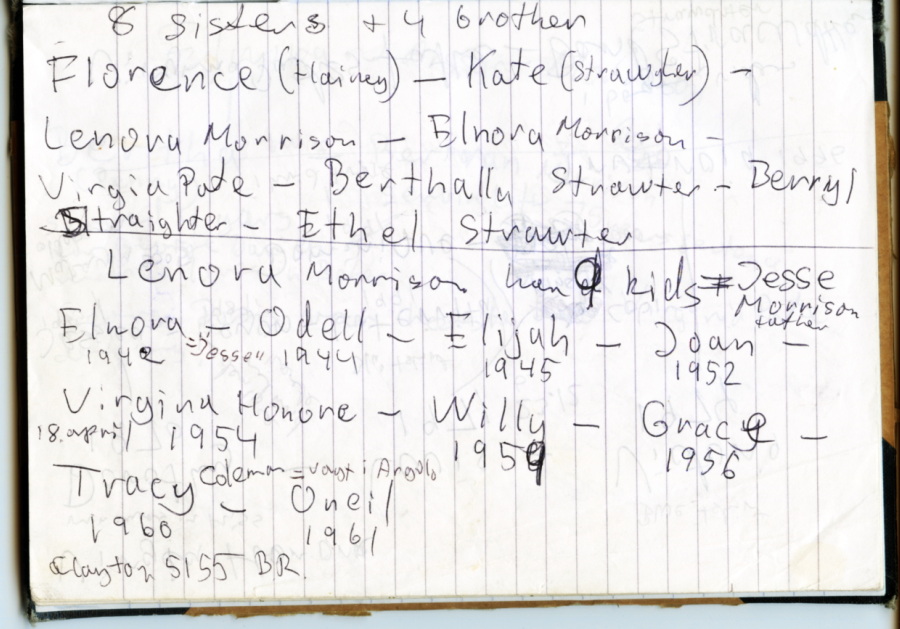 8 sisters + 4 brother
Florence (Hainey) – Kate (Strawder) –
Lenora Morrison – Elnora Morrison –
Virgia Pate – Berthalla Strawter – Berryl
Straighter – Ethel Strawter
Lenora Morrison han 9 kids = Jesse
Morrison
father
Elnora – Odell – Elijah – Joan –
1942 = "Jesse" 1944 1945 1952
Virgina Honore – Willy – Grace –
18. april 1954 1959 1956
Tracy Coleman = vayt i Angola
– Oneil
1960 1961
Clayton 5155 BR.